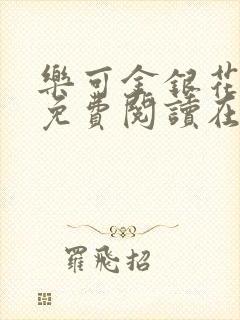 樂可金銀花
免費閱讀在
羅飛招